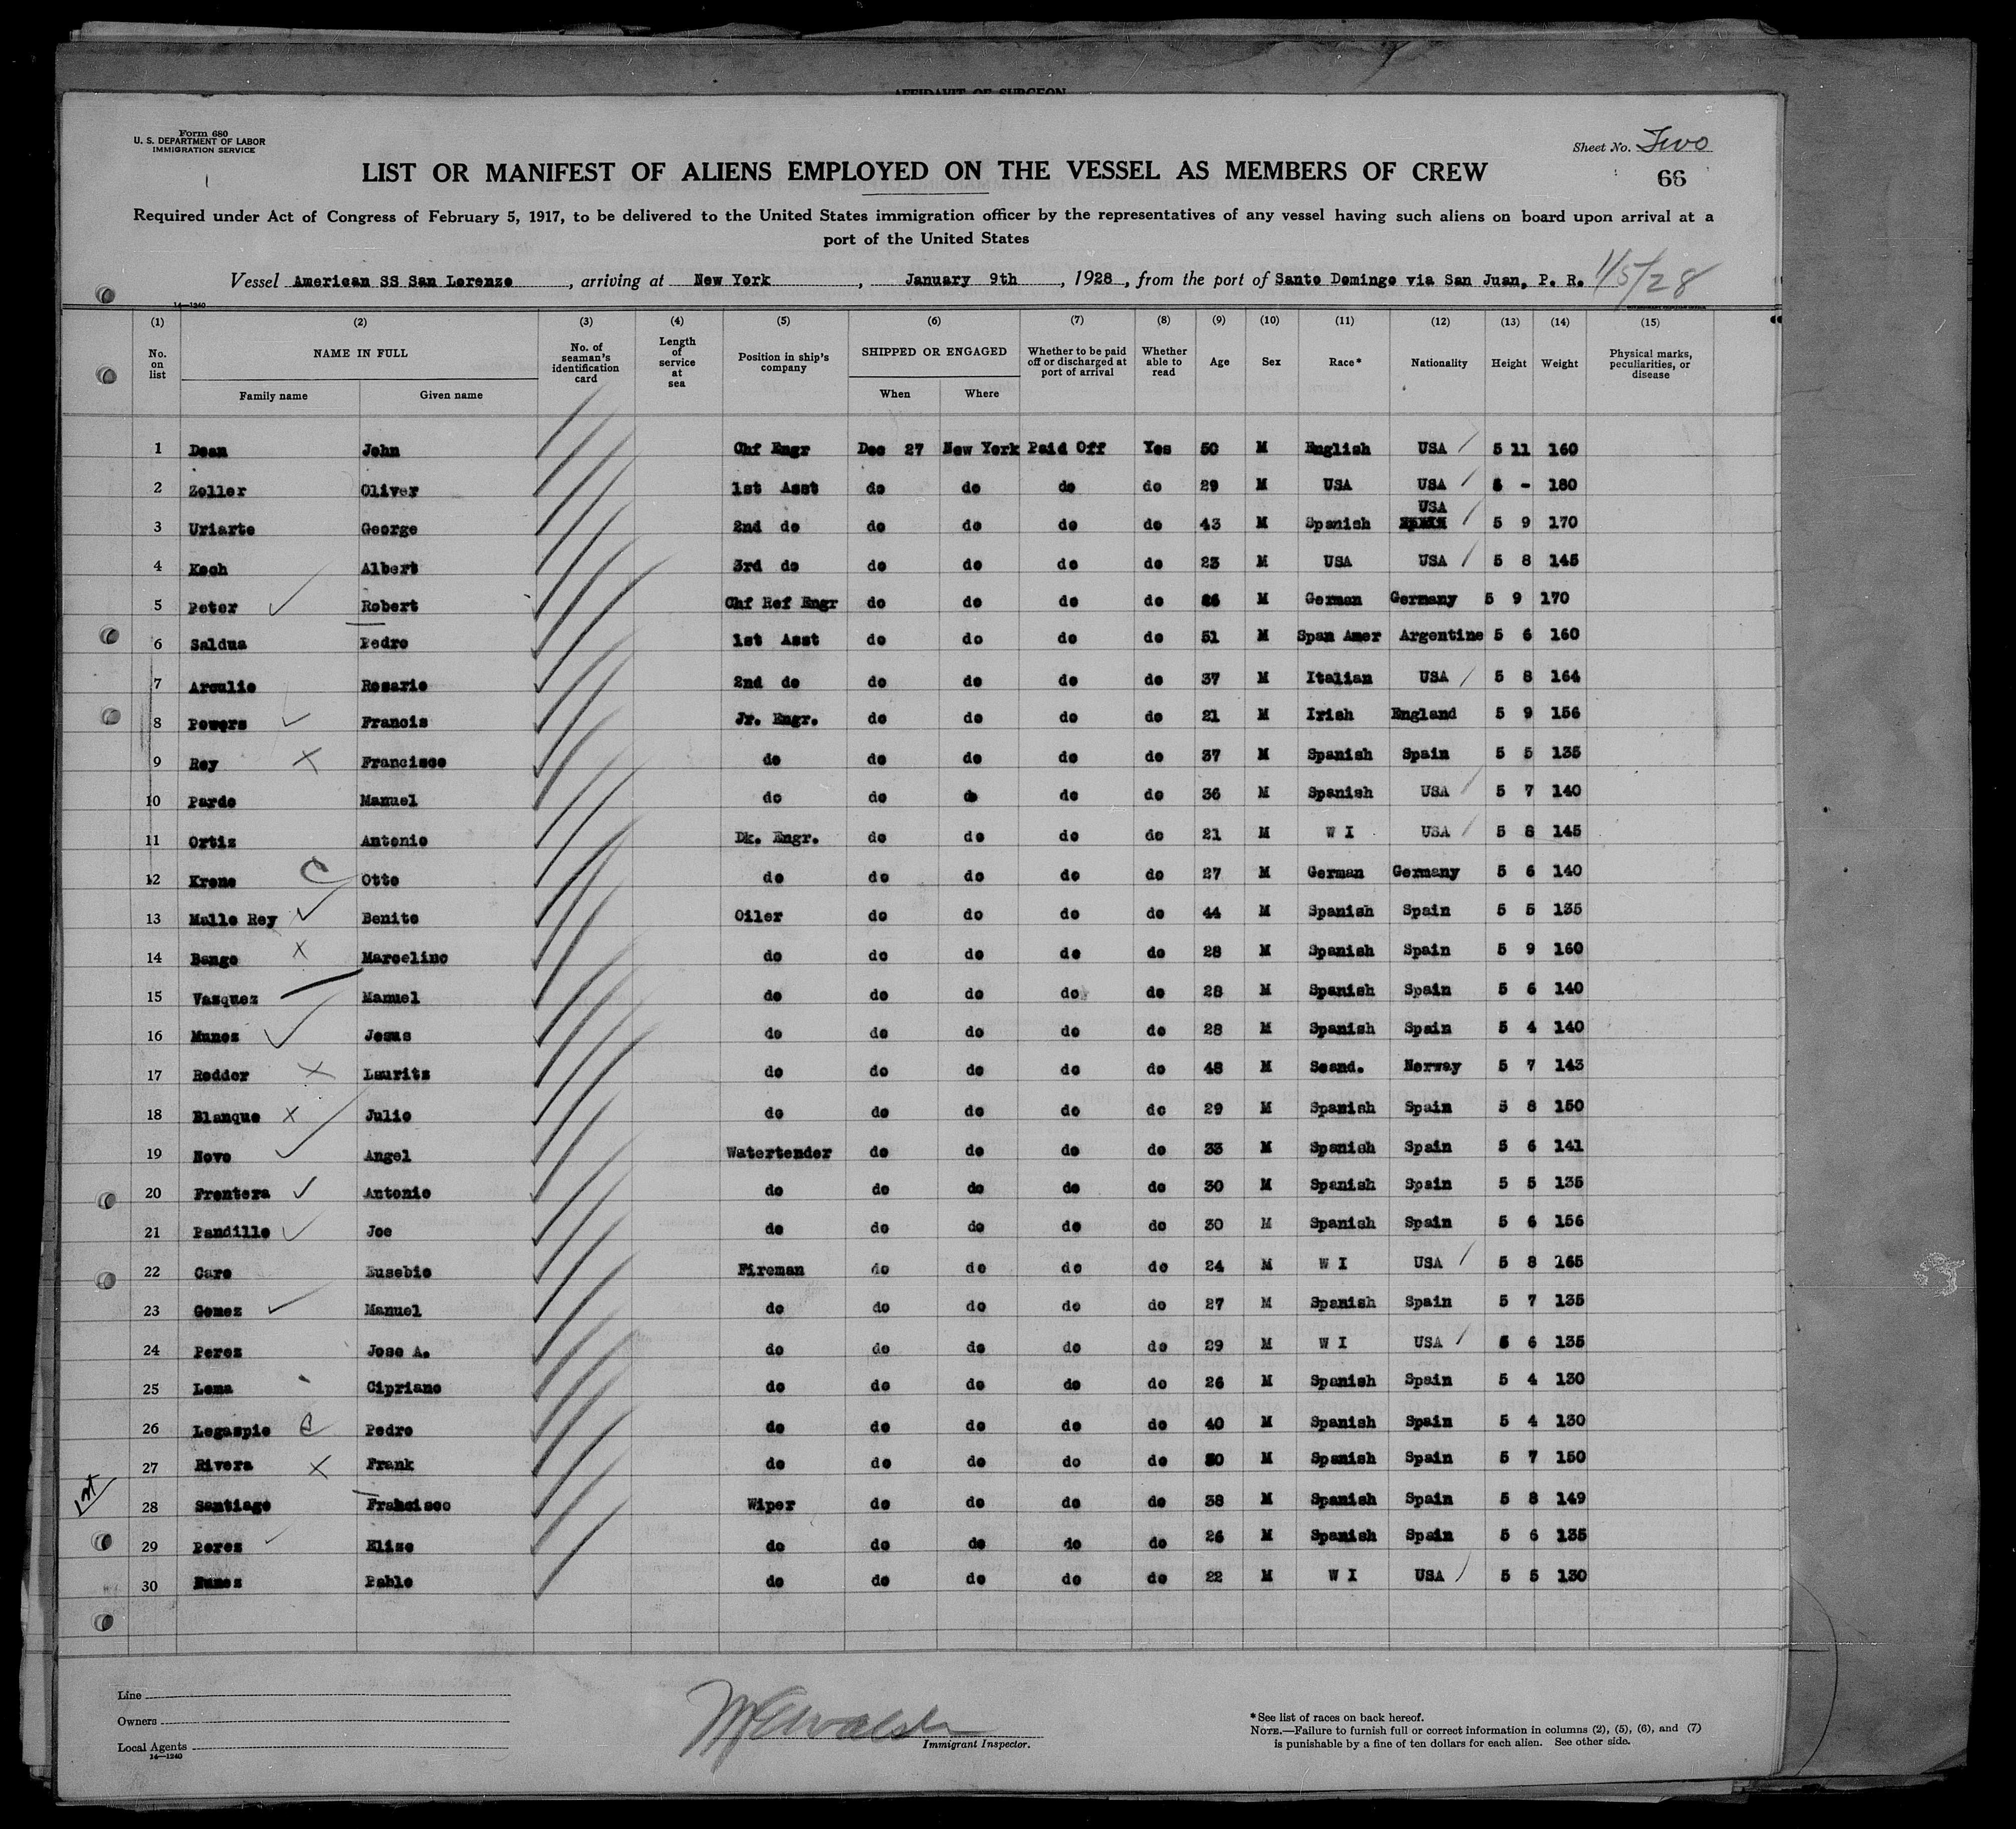 AFFIDAVIT OF SURGEON
Form 680
U. S. DEPARTMENT OF LABOR
IMMIGRATION SERVICE
Sheet No. Two
66
LIST OR MANIFEST OF ALIENS EMPLOYED ON THE VESSEL AS MEMBERS OF CREW
Required under Act of Congress of February 5, 1917, to be delivered to the United States immigration officer by the representatives of any vessel having such aliens on board upon arrival at a
port of the United States
Vessel American SS San Lorenzo, arriving at New York, January 9th, 1928, from the port of Santo Domingo via San Juan, P. R. 1/5/28
14—1240
(1) (2) (3) (4) (5) (6) (7) (8) (9) (10) (11) (12) (13) (14) (15)
No. on list NAME IN FULL Family name Given name No. of seaman's identification card Length of service at sea Position in ship's company SHIPPED OR ENGAGED When Where Whether to be paid off or discharged at port of arrival Whether able to read Age Sex Race* Nationality Height Weight Physical marks, peculiarities, or disease
1 Dean John Chf Engr Dec 27 New York Paid Off Yes 50 M English USA 5 11 160
2 Zeller Oliver 1st Asst do do do do 29 M USA USA 6 - 180
3 Uriarte George 2nd do do do do do 43 M Spanish USA 5 9 170
4 Koch Albert 3rd do do do do do 23 M USA USA 5 8 145
5 Peter Robert Chf Ref Engr do do do do M German Germany 5 9 170
6 Saldua Pedro 1st Asst do do do do 51 M Span Amer Argentine 5 6 160
7 Arculio Rosario 2nd do do do do do 37 M Italian USA 5 8 164
8 Powers Francis Jr. Engr. do do do do 21 M Irish England 5 9 156
9 Rey Francisco do do do do do 37 M Spanish Spain 5 5 135
10 Pardo Manuel do do do do do 36 M Spanish USA 5 7 140
11 Ortiz Antonio Dk. Engr. do do do do 21 M W I USA 5 8 145
12 Krone C Otto do do do do do 27 M German Germany 5 6 140
13 Malle Rey Benito Oiler do do do do 44 M Spanish Spain 5 5 135
14 Bango X Marcelino do do do do do 28 M Spanish Spain 5 9 160
15 Vazquez Manuel do do do do do 28 M Spanish Spain 5 6 140
16 Munoz Jesus do do do do do 28 M Spanish Spain 5 4 140
17 Redder X Lauritz do do do do do 48 M Scand. Norway 5 7 143
18 Blanque X Julio do do do do do 29 M Spanish Spain 5 8 150
19 Novo Angel Watertender do do do do 33 M Spanish Spain 5 6 141
20 Frontera Antonio do do do do do 30 M Spanish Spain 5 5 135
21 Pandille Joe do do do do do 30 M Spanish Spain 5 6 156
22 Caro Eusebio Fireman do do do do 24 M W I USA 5 8 165
23 Gomez Manuel do do do do do 27 M Spanish Spain 5 7 135
24 Perez Jose A. do do do do do 29 M W I USA 5 6 135
25 Lema Cipriano do do do do do 26 M Spanish Spain 5 4 130
26 Legaspie C Pedro do do do do do 40 M Spanish Spain 5 4 130
27 Rivera X Frank do do do do do M Spanish Spain 5 7 150
28 Santiago Francisco Wiper do do do do 38 M Spanish Spain 5 8 149
29 Perez Elise do do do do do 26 M Spanish Spain 5 6 135
30 Nunez Pablo do do do do do 22 M W I USA 5 5 130
Line
Owners
Local Agents
14—1240
Immigrant Inspector.
*See list of races on back hereof.
NOTE.—Failure to furnish full or correct information in columns (2), (5), (6), and (7)
is punishable by a fine of ten dollars for each alien. See other side.